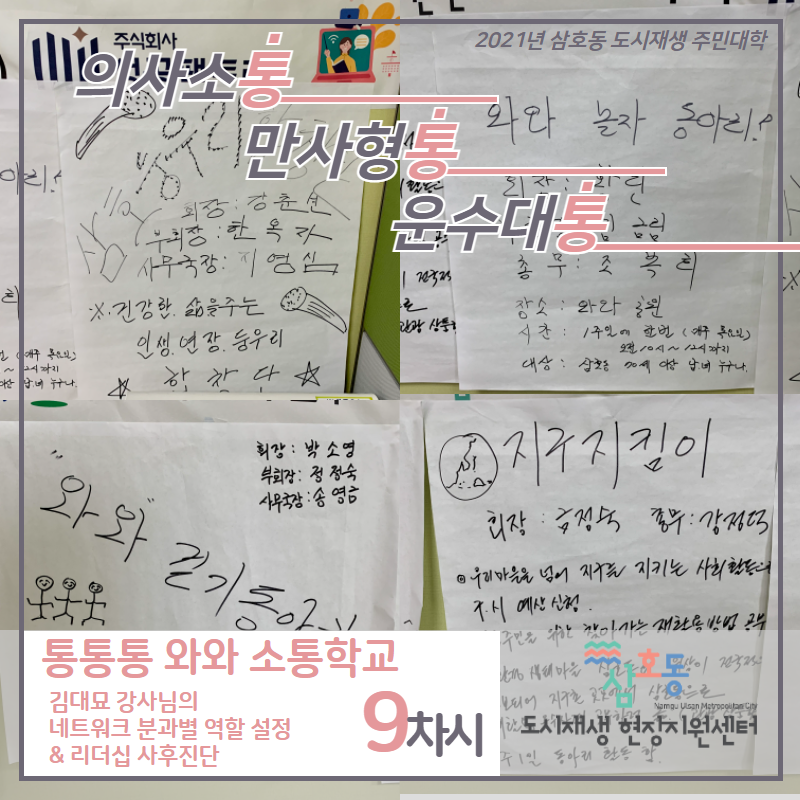 주식회사
2021년 삼호동 도시재생 주민대학
의사소통
만사형통
운수대통
회장: 강춘선
부회장: 한옥자
사무국장: 지영심
※. 건강한. 삶을주는
인생. 연장. 둥우리
합창단
와와 놀자 동아리!
총무: 조복희
장소: 와와 공원
시간: 1주일에 한번 (매주 목요일)
오전 10시 ~ 12시까지
대상: 삼호동 70세 이상 남녀 누구나.
"와와"
걷기동아
회장: 박소영
부회장: 정정숙
사무국장: 송영금
지구지킴이
회장: 금정숙 총무: 강정덕
◎ 우리마을을 넘어 지구를 지키는 사회활동
구.시 예산신청.
주민을 위한 찾아가는 재활용방법 공부
주1일 동아리 활동 함.
통통통 와와 소통학교
김대묘 강사님의
네트워크 분과별 역할 설정
& 리더십 사후진단
9차시
삼호동
Namgu Ulsan Metropolitan City
도시재생 현장지원센터